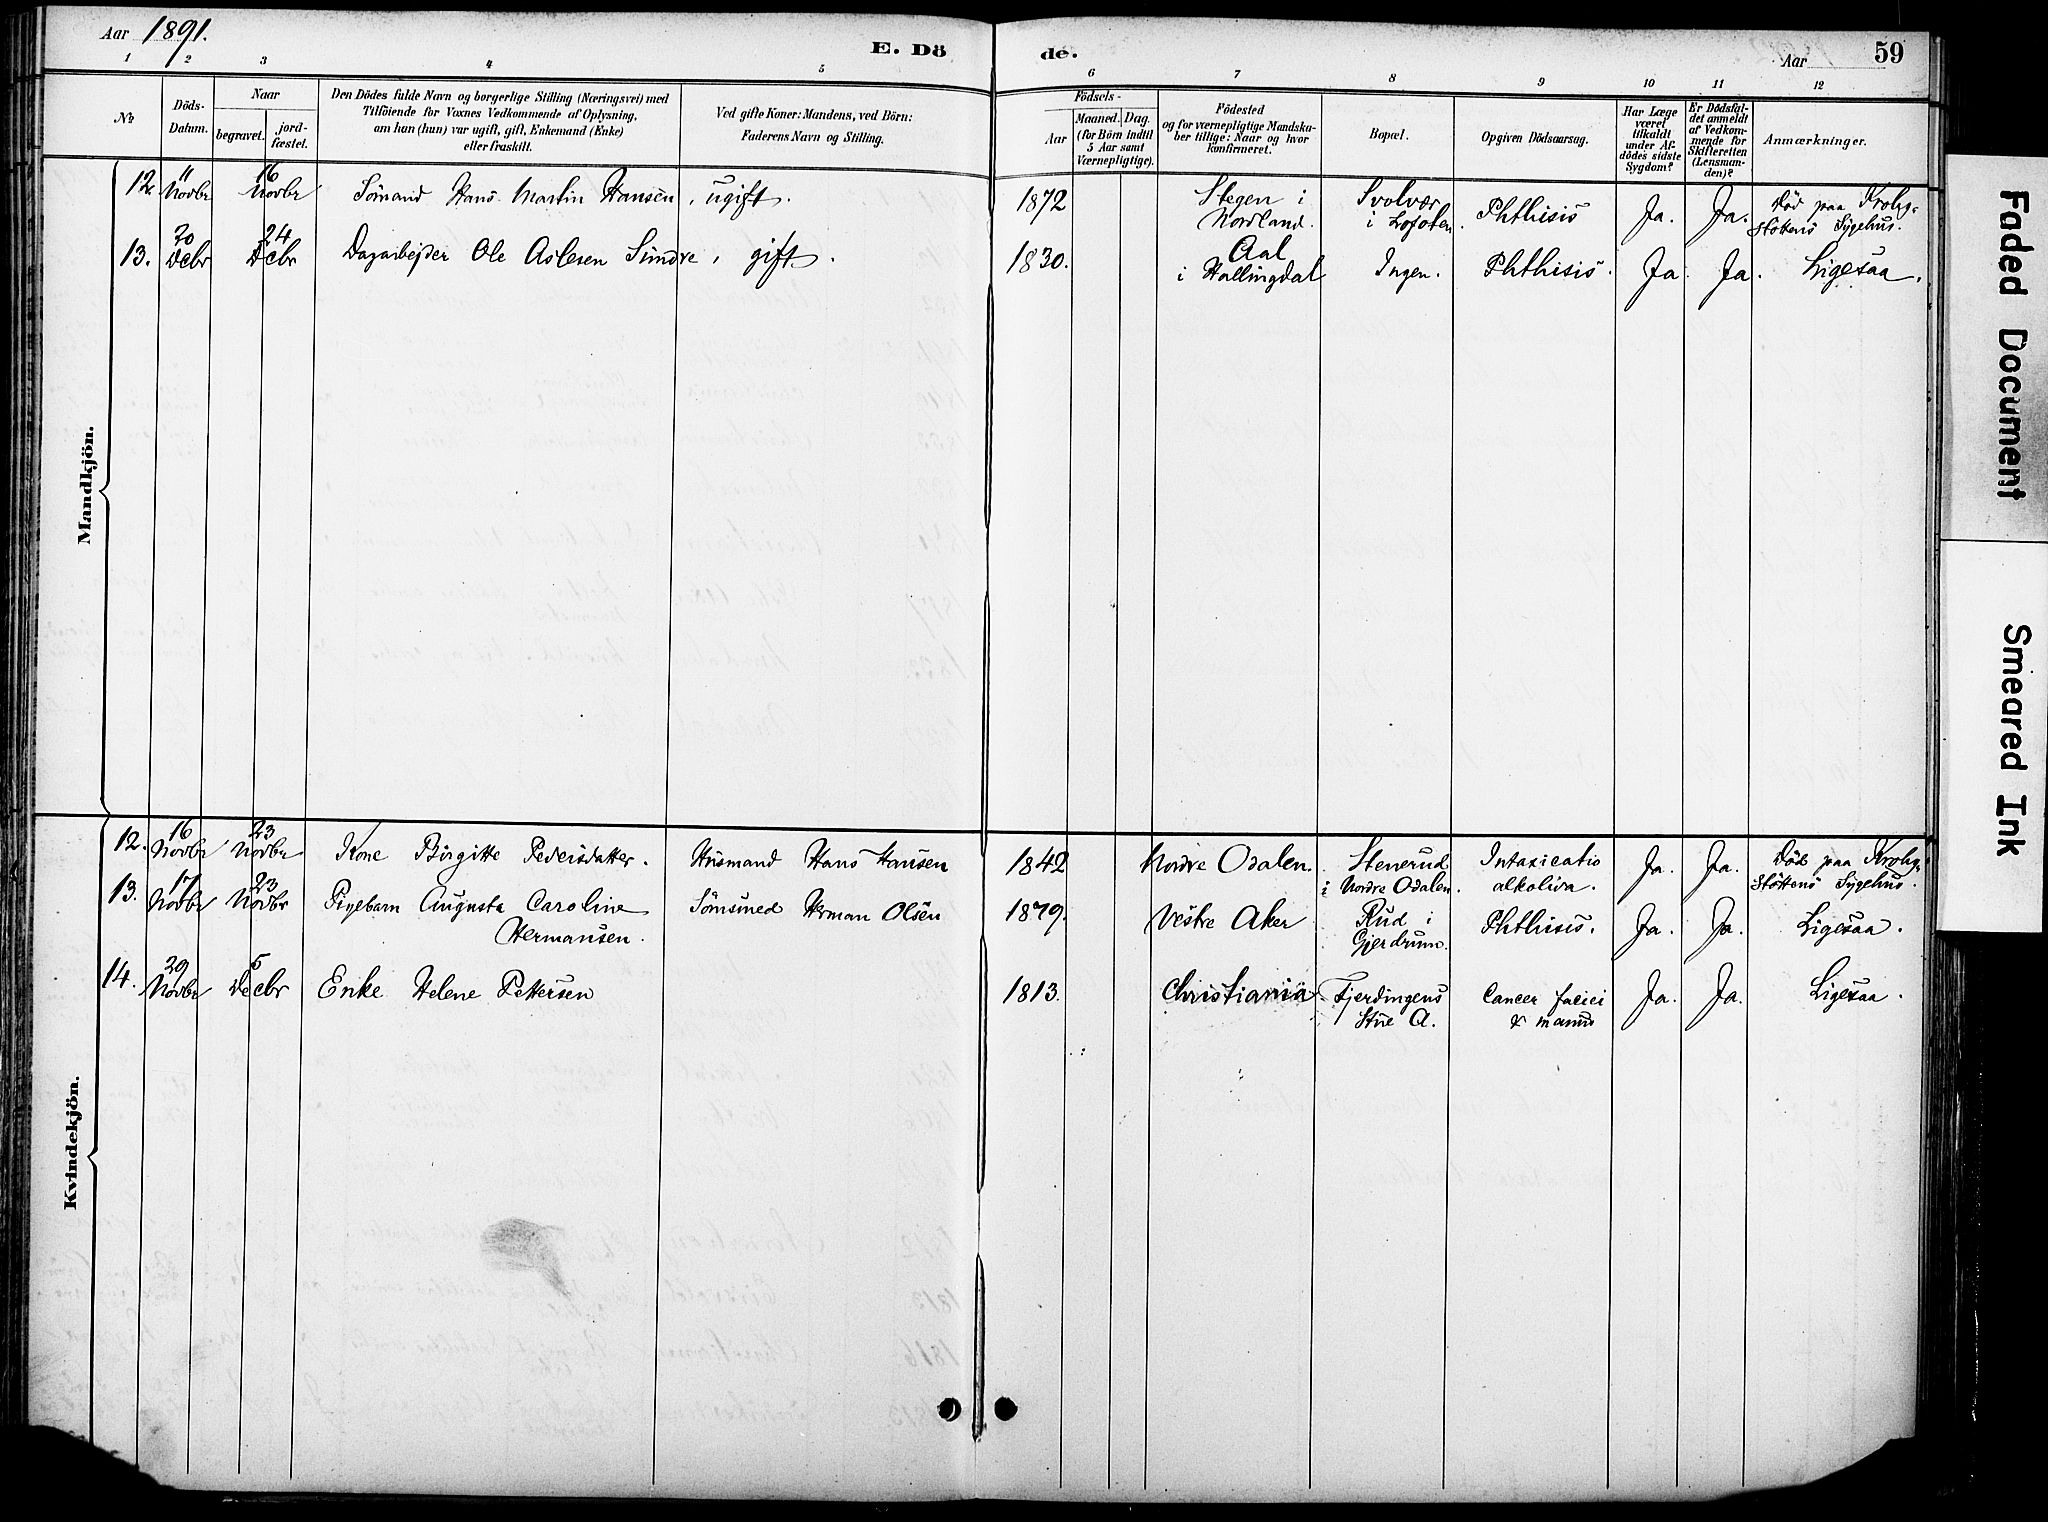 Aar 1891.
E. Döde.
Aar
59
1 2 3 4 5 6 7 8 9 10 11 12
No
Döds-Datum.
Naar
begravet.
jord-fæstet.
Den Dödes fulde Navn og borgerlige Stilling (Næringsvei) med
Tilföiende for Voxnes Vedkommende af Oplysning,
om han (hun) var ugift, gift, Enkemand (Enke)
eller fraskilt.
Ved gifte Koner: Mandens, ved Börn:
Faderens Navn og Stilling.
Födsels-
Aar
Maaned. Dag.
(for Börn indtil
5 Aar samt
Værnepligtige).
Födested
og for værnepligtige Mandska-
ber tillige: Naar og hvor
konfirmeret.
Bopæl.
Opgiven Dödsaarsag.
Har Læge
været
tilkaldt
under Af-
dödes sidste
Sygdom?
Er Dödsfal-
det anmeldt
af Vedkom-
mende for
Skifteretten
(Lensman-
den)?
Anmærkninger.
Mandkjön.
12. 11 Novbr 16 Novbr Sömand Hans Martin Hansen, ugift. 1872 Stegen i Nordland. Svolvær i Lofoten. Phthisis Ja. Ja. Död paa Krohg-stöttens Sygehus.
13. 20 Decbr 24 Decbr Dagarbejder Ole Aslesen Sundre, gift. 1830. Aal i Hallingdal Ingen. Phthisis. Ja. Ja. Ligesaa.
Kvindekjön.
12. 16 Novbr 23 Novbr Kone Birgitte Pedersdatter. Husmand Hans Hansen 1842 Nordre Odalen. Stenerud i Nordre Odalen. Intoxicatio alkolica. Ja. Ja. Död paa Krohg-stöttens Sygehus.
13. 17 Novbr 23 Novbr Pigebarn Augusta Caroline Hermansen. Sömsmed Herman Olsen 1879. Vestre Aker Rud i Gjerdrum. Phthisis. Ja. Ja. Ligesaa.
14. 29 Novbr 5 Decbr Enke Helene Pettersen 1813. Christiania Fjerdingens Stue A. Cancer faciei & manus Ja. Ja. Ligesaa.
Faded Document
Smeared Ink